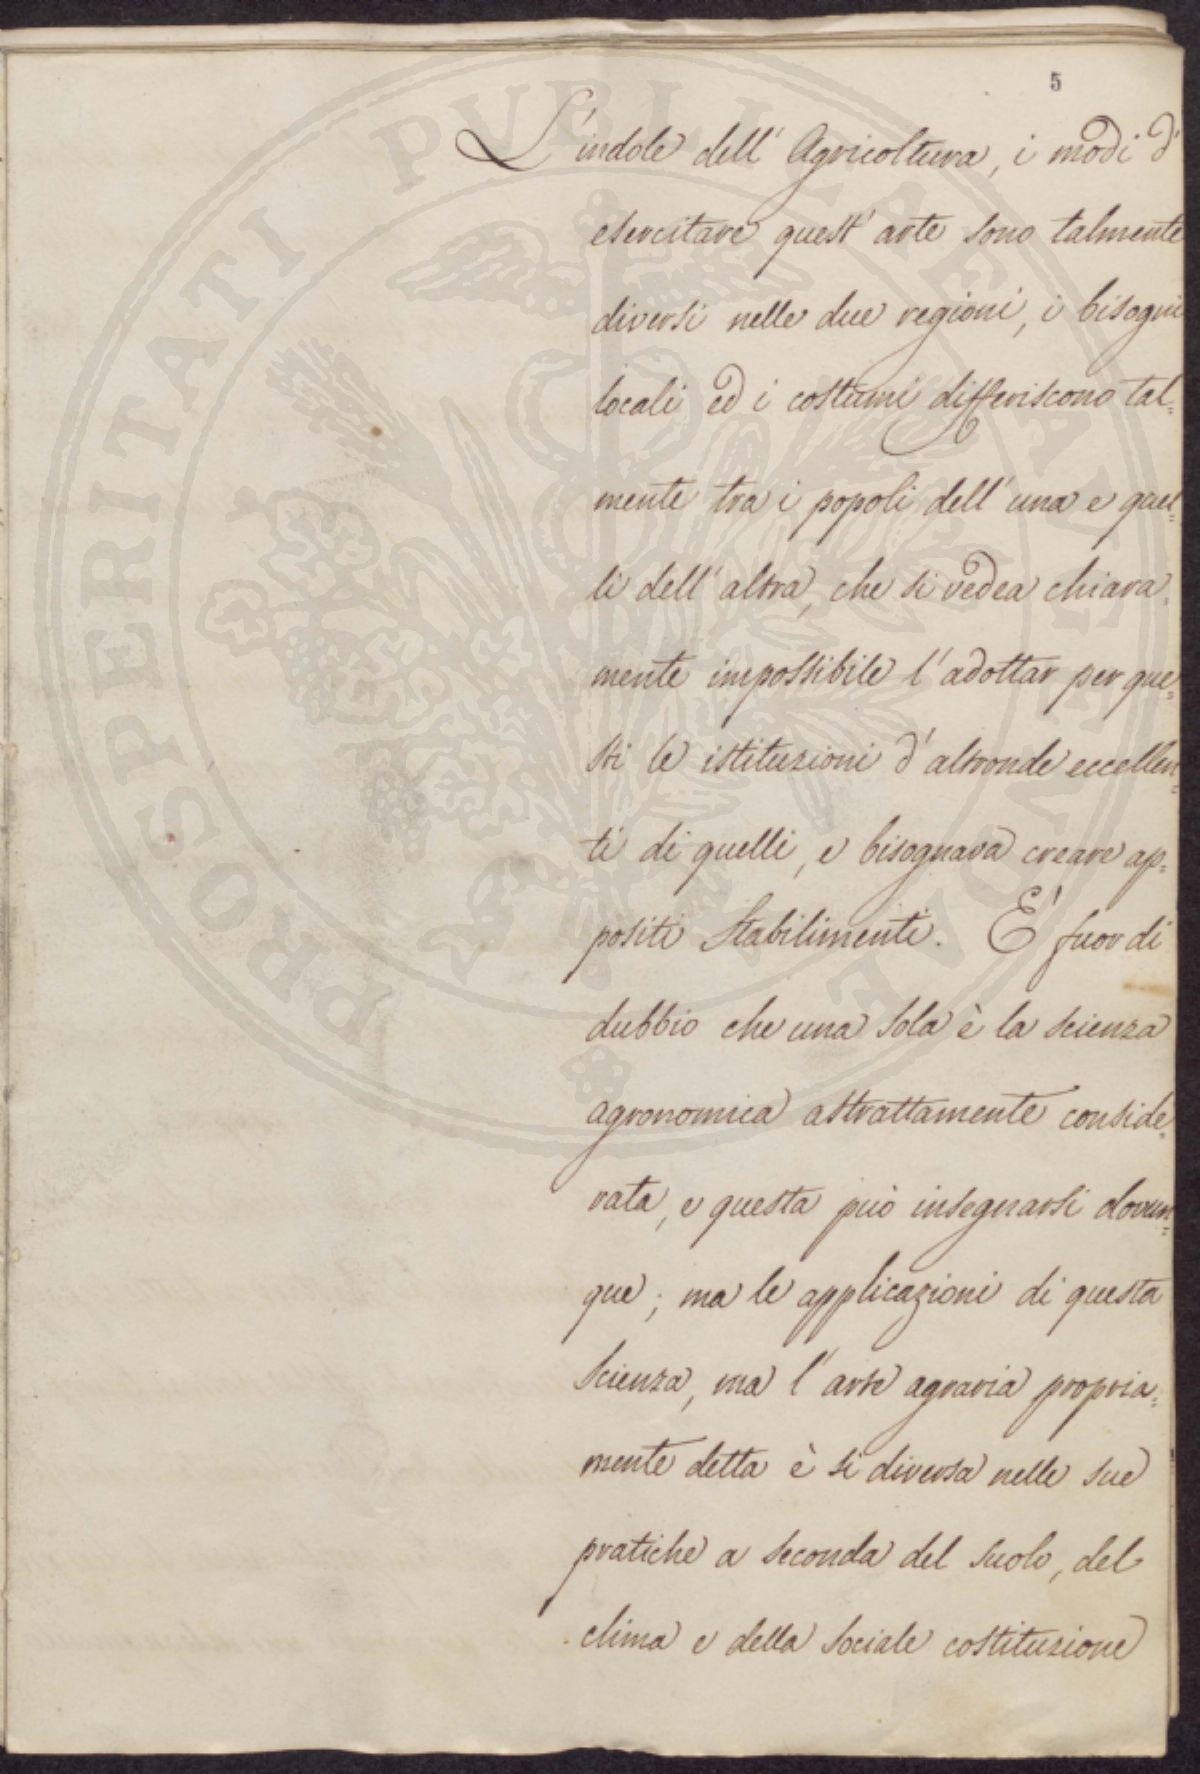 5
L'indole dell'Agricoltura, i modi d'
esercitare quest'arte sono talmente
diversi nelle due regioni, i bisogni
locali ed i costumi differiscono tal=
mente tra i popoli dell'una e quel=
li dell'altra, che si vedea chiara=
mente impossibile l'adottar per que=
sti le istituzioni d'altronde eccellen=
ti di quelli, e bisognava creare ap=
positi Stabilimenti. É fuor di
dubbio che una sola è la scienza
agronomica astrattamente conside=
rata, e questa può insegnarsi dovun=
que; ma le applicazioni di questa
scienza, ma l'arte agraria propria=
mente detta è si diversa nelle sue
pratiche a seconda del suolo, del
clima e della sociale costituzione
PROSPERITATI PVBLICAE AVGENDAE